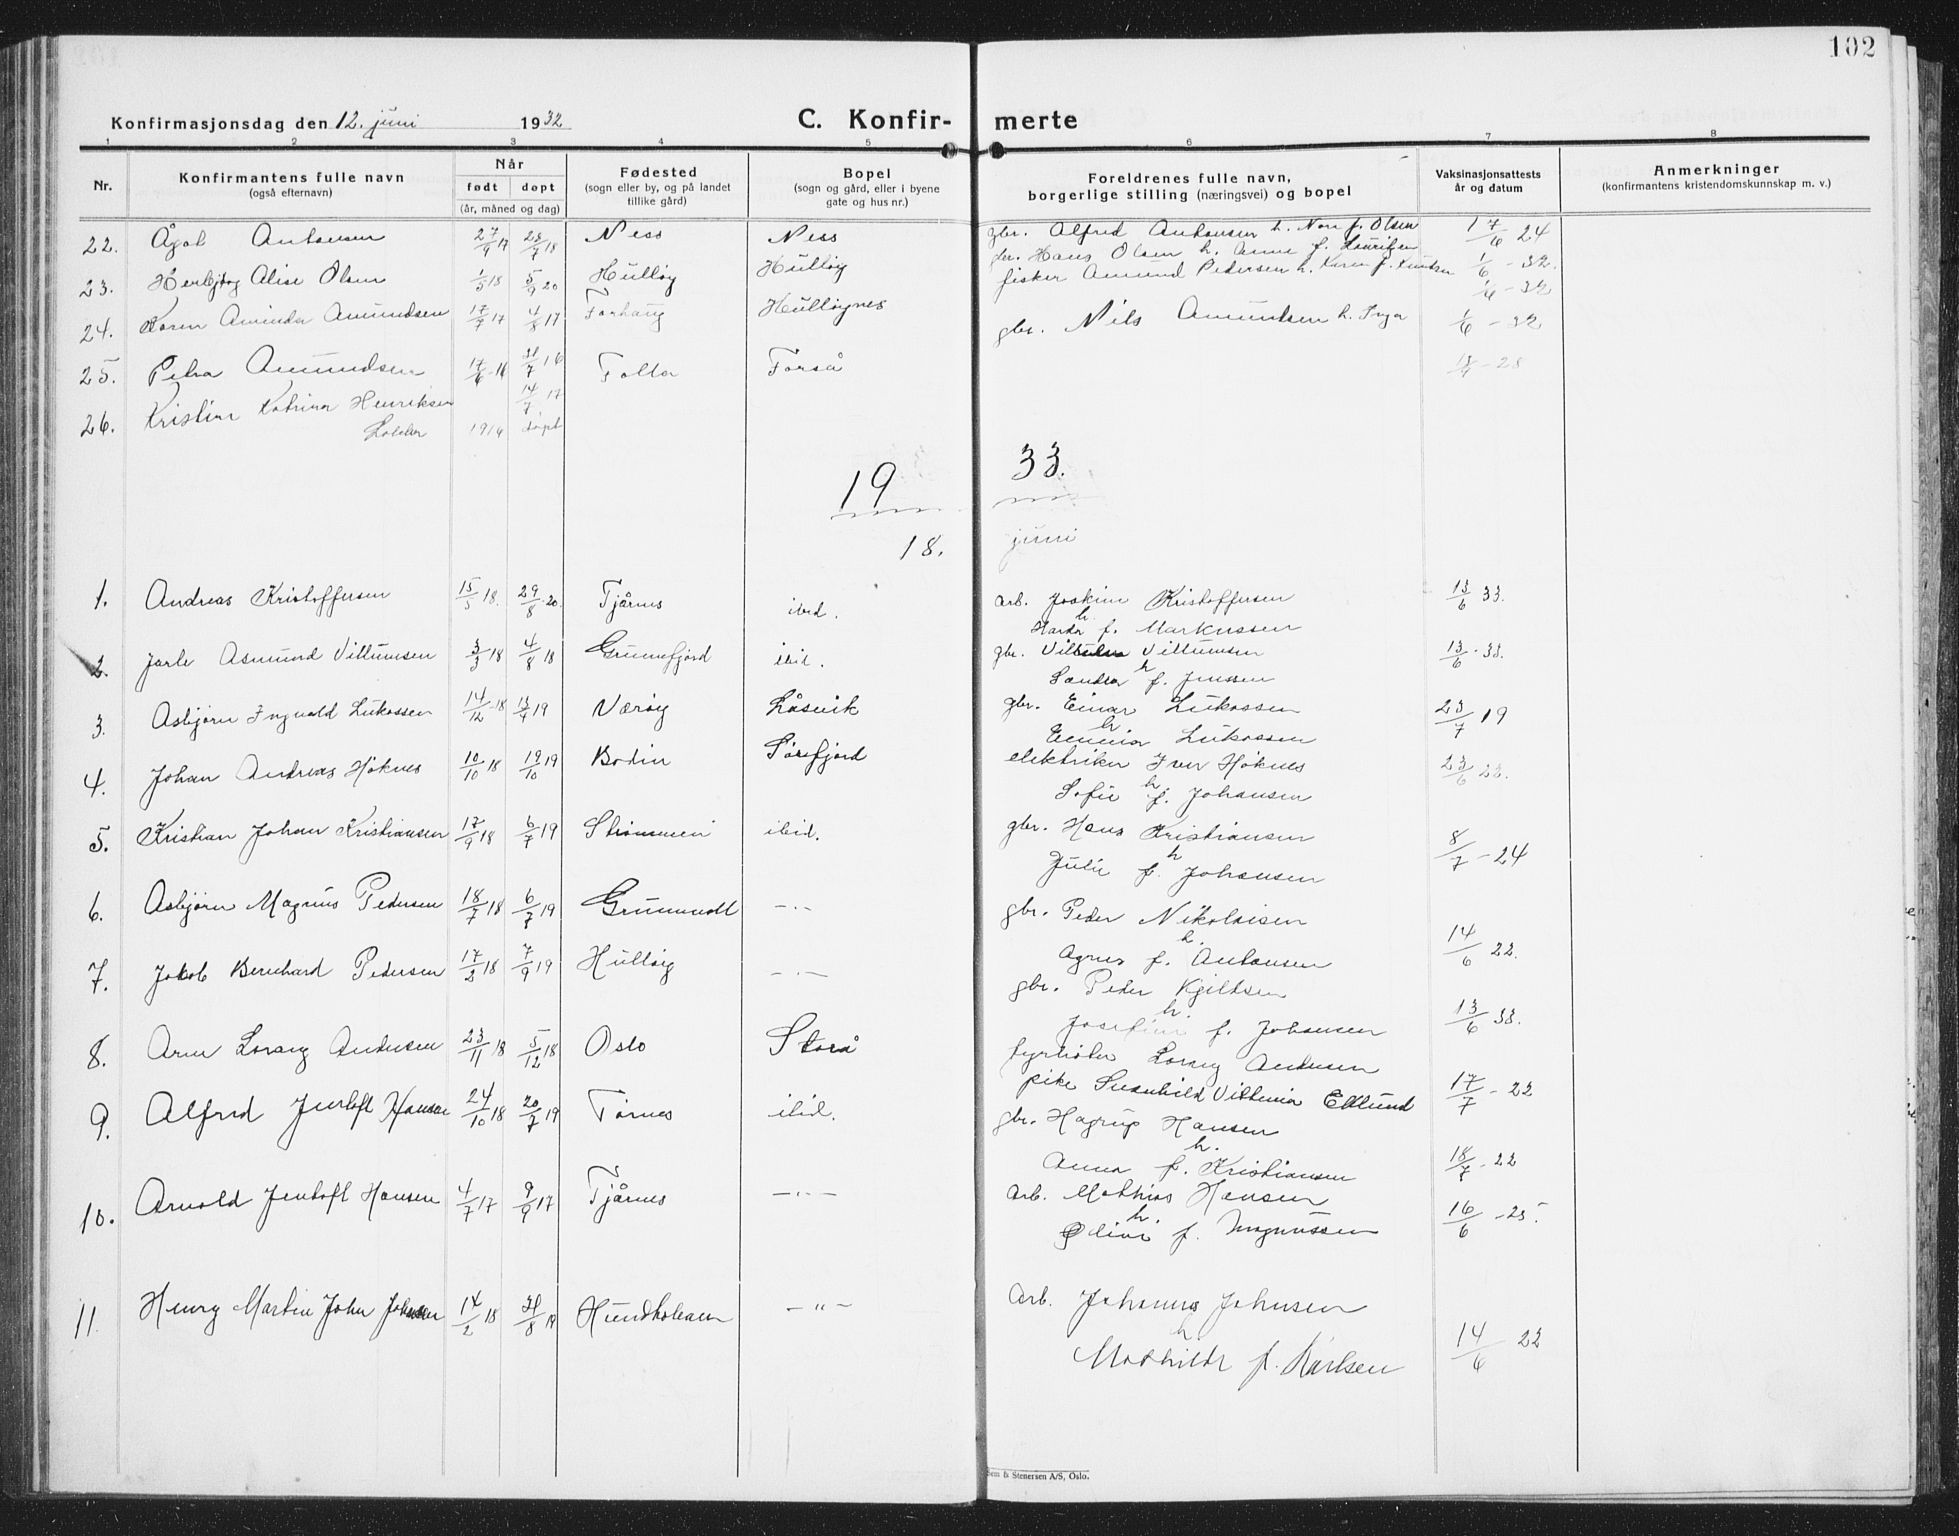 102
Konfirmasjonsdag den 12. juni 1932 C. Konfir- merte
1 2 3 4 5 6 7 8
Nr. Konfirmantens fulle navn (også efternavn) Når født døpt (år, måned og dag) Fødested (sogn eller by, og på landet tillike gård) Bopel (sogn og gård, eller i byene gate og hus nr.) Foreldrenes fulle navn, borgerlige stilling (næringsvei) og bopel Vaksinasjonsattests år og datum Anmerkninger (konfirmantens kristendomskunnskap m. v.)
22. Ågot Antonsen 27/9 17 Ness Ness gbr. Alfred Antonsen h. f. Olsen 17/6 24
23. Herbjørg Alise Olsen 1/5 18 5/9 20 Hulløy Hulløy gbr. Hans Olsen h. Anna f. Lauritsen 1/6 - 32.
24. Karen Aminda Amundsen 17/7 17 4/8 17 Forhaug Hulløynes fisker Amund Pedersen h. Karen f. Knutsen 1/6 - 32
25. Petra Amundsen 17/6 - 16 7 16 Folla Forså gbr. Nils Amundsen h. Inga 1/6 - 32
26. Kristine Katrine Henriksen 14/7 17 - 28
1914 døpt
19 33.
18. juni
1. Andreas Kristoffersen 15/5 18. 29/8 20. Tjårnes ibid. arb. Joakim Kristoffersen 13/6 33.
h. f. Markussen
2. Jarle Asmund Villumsen 3/3 18 4/8 18 Grunnfjord ibid. gbr. Villumsen 13/6 - 33.
Sandra h f. Jenssen
3. Asbjørn Ingvald Lukassen 14/12 - 18 19 Værøy Låsvik gbr. Einar Lukassen 23/7 19
Emmia h Lukassen
4. Johan Andreas Høknes 10/10 18 19/10 19 Bodin Sørfjord elektriker Iver Høknes 23/6 22.
Sofie h f. Johansen
5. Kristian Johan Kristiansen 17/9 18 6/7 19 Strømmen ibid. gbr. Hans Kristiansen 8/7 - 24
Julie h f. Johansen
6. Asbjørn Magnus Pedersen 18/7 18 6/7 19 -·- gbr. Peder Nikolaisen 14/6 22.
Agnes h. f. Antonsen
7. Jakob Bernhard Pedersen 17/2 18 7/9 19 Hulløy -·- gbr. Peder Kjeldsen 13/6 33.
Josefine h. f. Johansen
8. Arne Lorang Andersen 23/11 18 5/12 18 Oslo Storå fyrbøter Lorang Andersen 17/7 - 22
pike Svanhild Vilhemia Edlund
9. Alfred Jentoft Hansen 24/10 18 20/7 19 Tørnes ibid. gbr. Hagrup Hansen 18/7 - 22
Anna h. f. Kristiansen
10. Arnold Jentoft Hansen 4/7 17 9/9 17 Tjårnes -·- arb. Mathias Hansen 16/6 - 25.
h. f. Magnussen
11. Henry Martin John Johnsen 14/2 18 Hundholmen - " - arb. Johannes Johnsen 14/6 22
h Mathilde f. Karlsen
& Stenersen A/S, Oslo.